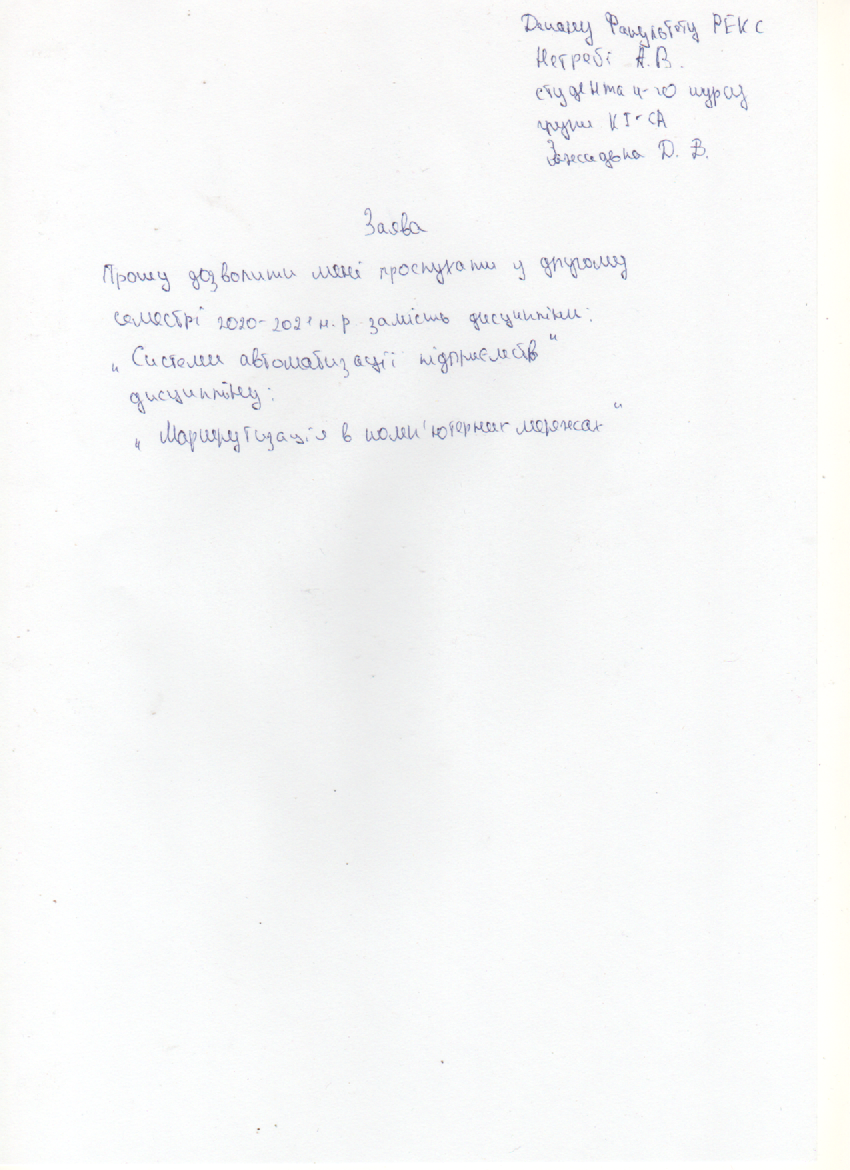 Декану Факультету РЕКС
Нетребі А.В.
студента 4-го курсу
групи КІ-СА
Д. В.
Заява
Прошу дозволити мені прослухати у другому
семестрі 2020-2021 н.р. замість дисципліни:
„ Системи автоматизації підприємств "
дисципліну:
„ Маршрутизація в комп'ютерних мережах "